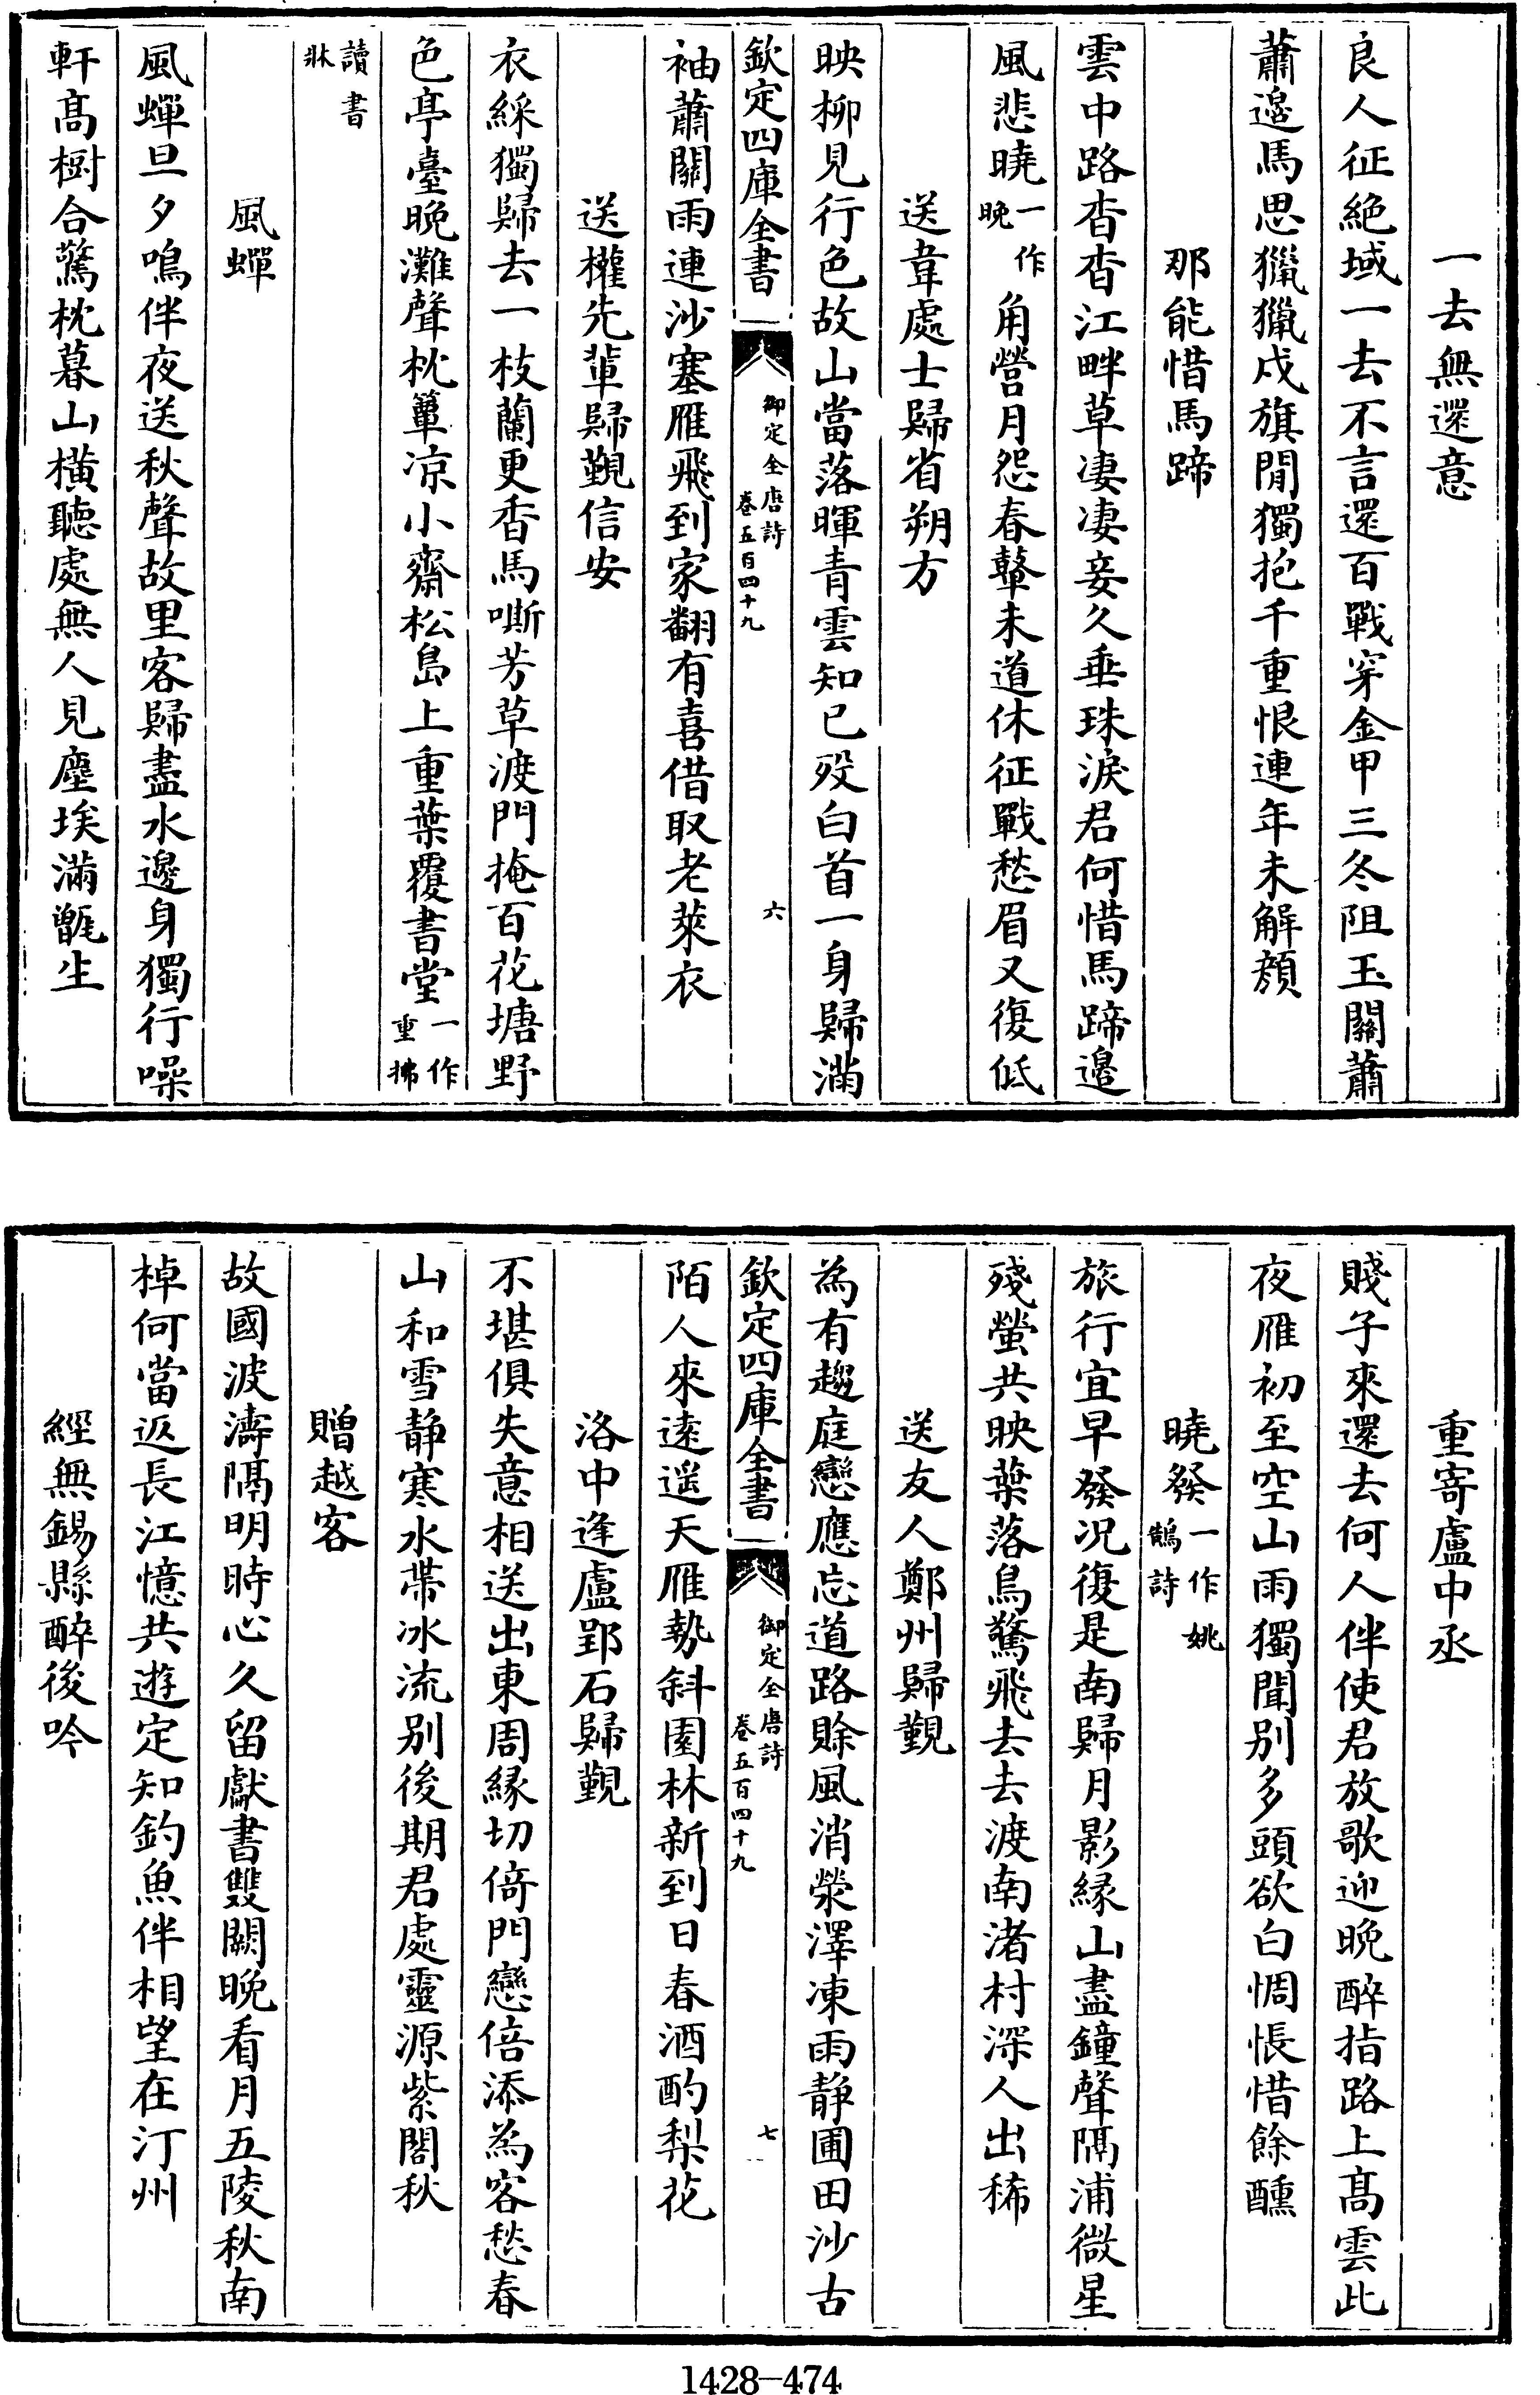 一去無還意
良人征絶域一去不言還百戰穿金甲三冬阻玉關蕭
蕭邉馬思獵獵戍旗閒獨抱千重恨連年未解顔
那能惜馬蹄
雲中路杳杳江畔草凄凄妾久垂珠淚君何惜馬蹄邉
風悲曉一作晚角營月怨春鼙未道休征戰愁眉又復低
送韋處士歸省朔方
映柳見行色故山當落暉青雲知已殁白首一身歸滿
欽定四庫全書 御定全唐詩 卷五百四十九 六
袖蕭關雨連沙塞雁飛到家翻有喜借取老萊衣
送權先輩歸覲信安
衣綵獨歸去一枝蘭更香馬嘶芳草渡門掩百花塘野
色亭臺晚灘聲枕簟凉小齋松島上重葉覆書堂一作重拂
讀書牀
風蟬
風蟬旦夕鳴伴夜送秋聲故里客歸盡水邊身獨行噪
軒髙樹合驚枕暮山橫聽處無人見塵埃滿甑生
重寄盧中丞
賤子來還去何人伴使君放歌迎晚醉指路上髙雲此
夜雁初至空山雨獨聞别多頭欲白惆悵惜餘醺
曉發一作姚鵠詩
旅行宜早發况復是南歸月影緣山盡鐘聲隔浦微星
殘螢共映葉落鳥驚飛去去渡南渚村深人出稀
送友人鄭州歸覲
為有趨庭戀應忘道路賒風消滎澤凍雨静圃田沙古
欽定四庫全書 御定全唐詩 卷五百四十九 七
陌人來逺遥天雁勢斜園林新到日春酒酌梨花
洛中逢盧郢石歸覲
不堪俱失意相送出東周緣切倚門戀倍添為客愁春
山和雪静寒水帶冰流别後期君處靈源紫閣秋
贈越客
故國波濤隔明時心久留獻書雙闕晚看月五陵秋南
棹何當返長江憶共遊定知釣魚伴相望在汀州
經無錫縣醉後吟
1428-474